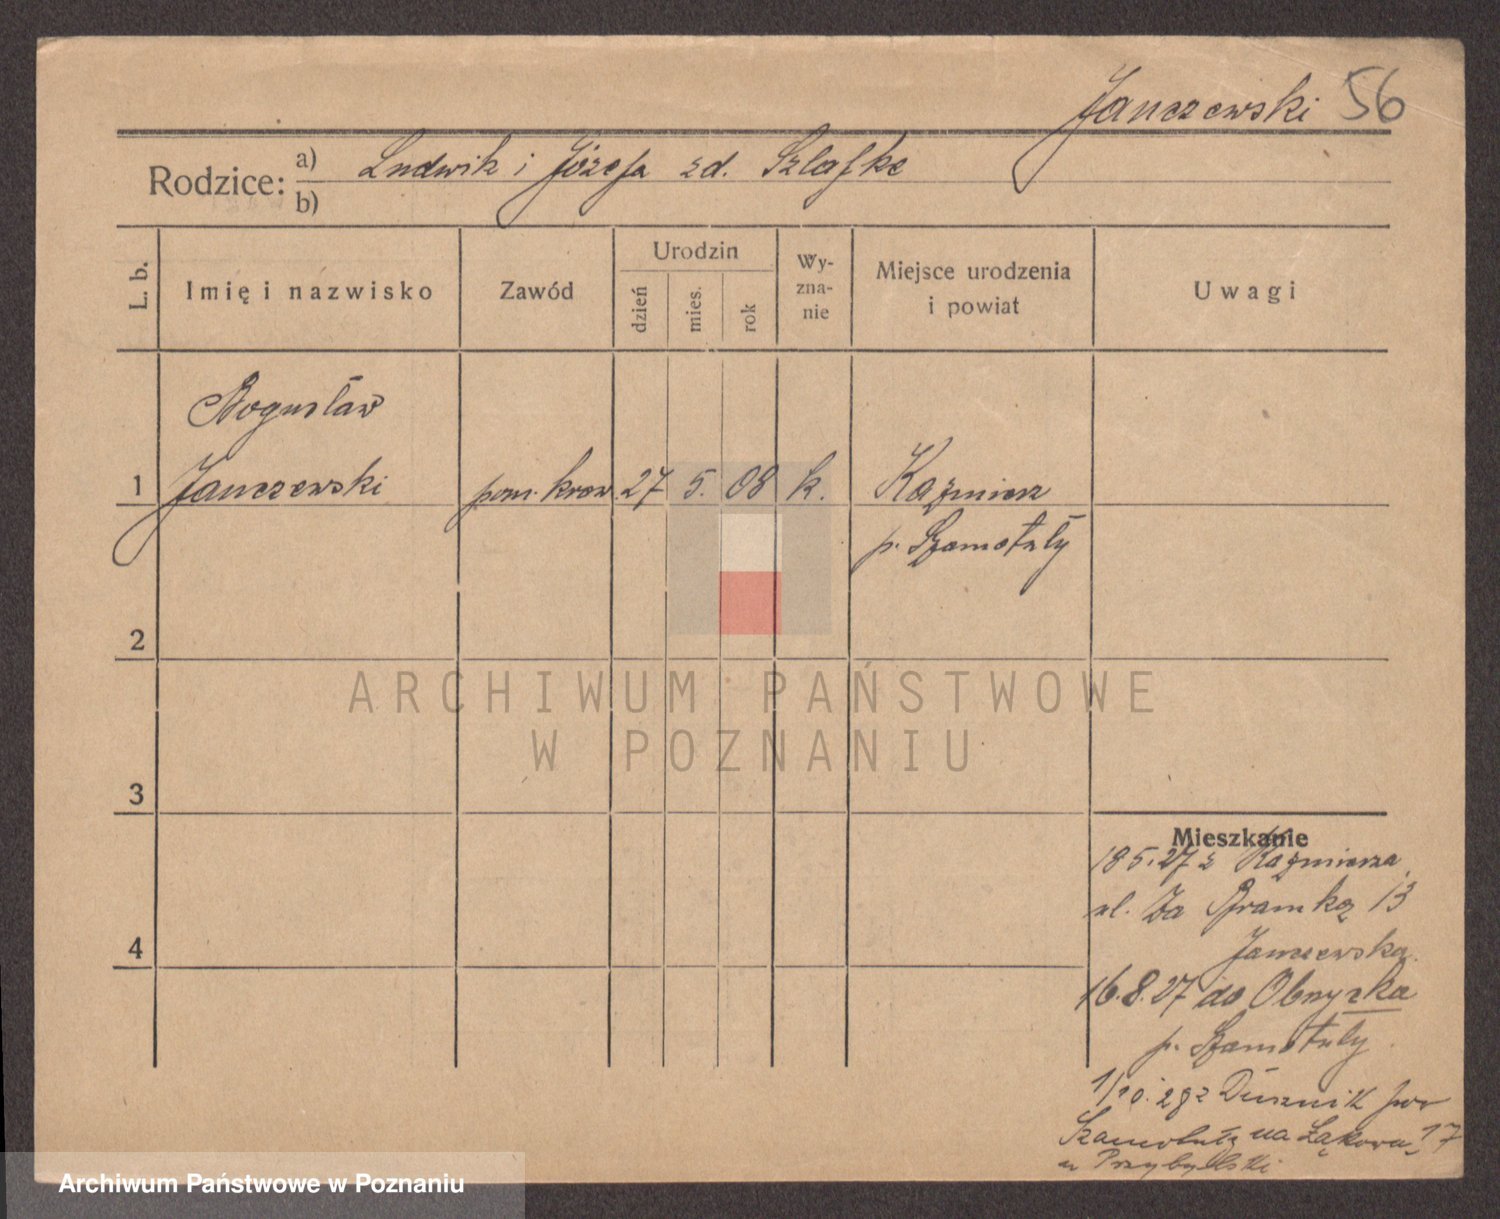 Janczewski 56
Rodzice: a) Ludwik i Józefa zd. Szlafke
b)
L. b.
Imię i nazwisko
Zawód
Urodzin
dzień
mies.
rok
Wy-
zna-
nie
Miejsce urodzenia
i powiat
Uwagi
Bogusław
1 Janczewski pom. kraw 27 5. 08 k. Kaźmierz
p. Szamotuły
2
ARCHIWUM PAŃSTWOWE
W POZNANIU
3
Mieszkanie
18 5.27 z Kaźmierza
ul. Za Bramką 13
Janczewska.
4
16.8.27 do Obrzycka
p. Szamotuły.
1/10.29 z Dusznik pow
Szamotuły na Łąkowa 17
u Przybylski
Archiwum Państwowe w Poznaniu